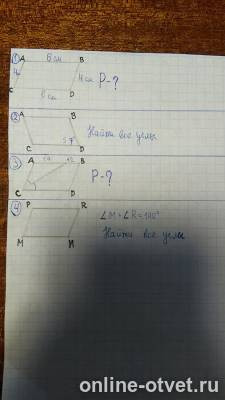 ① A 6 см B
4 4 см P-?
C 6 см D
② A B
Найти все углы
C 57 D
③ A B
P-?
C D
④ P R
∠M+∠R=140°
M N
Найти все углы
online-otvet.ru